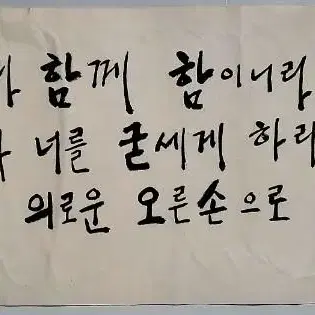 함께 함이니라
너를 굳세게 하리
의로운 오른손으로